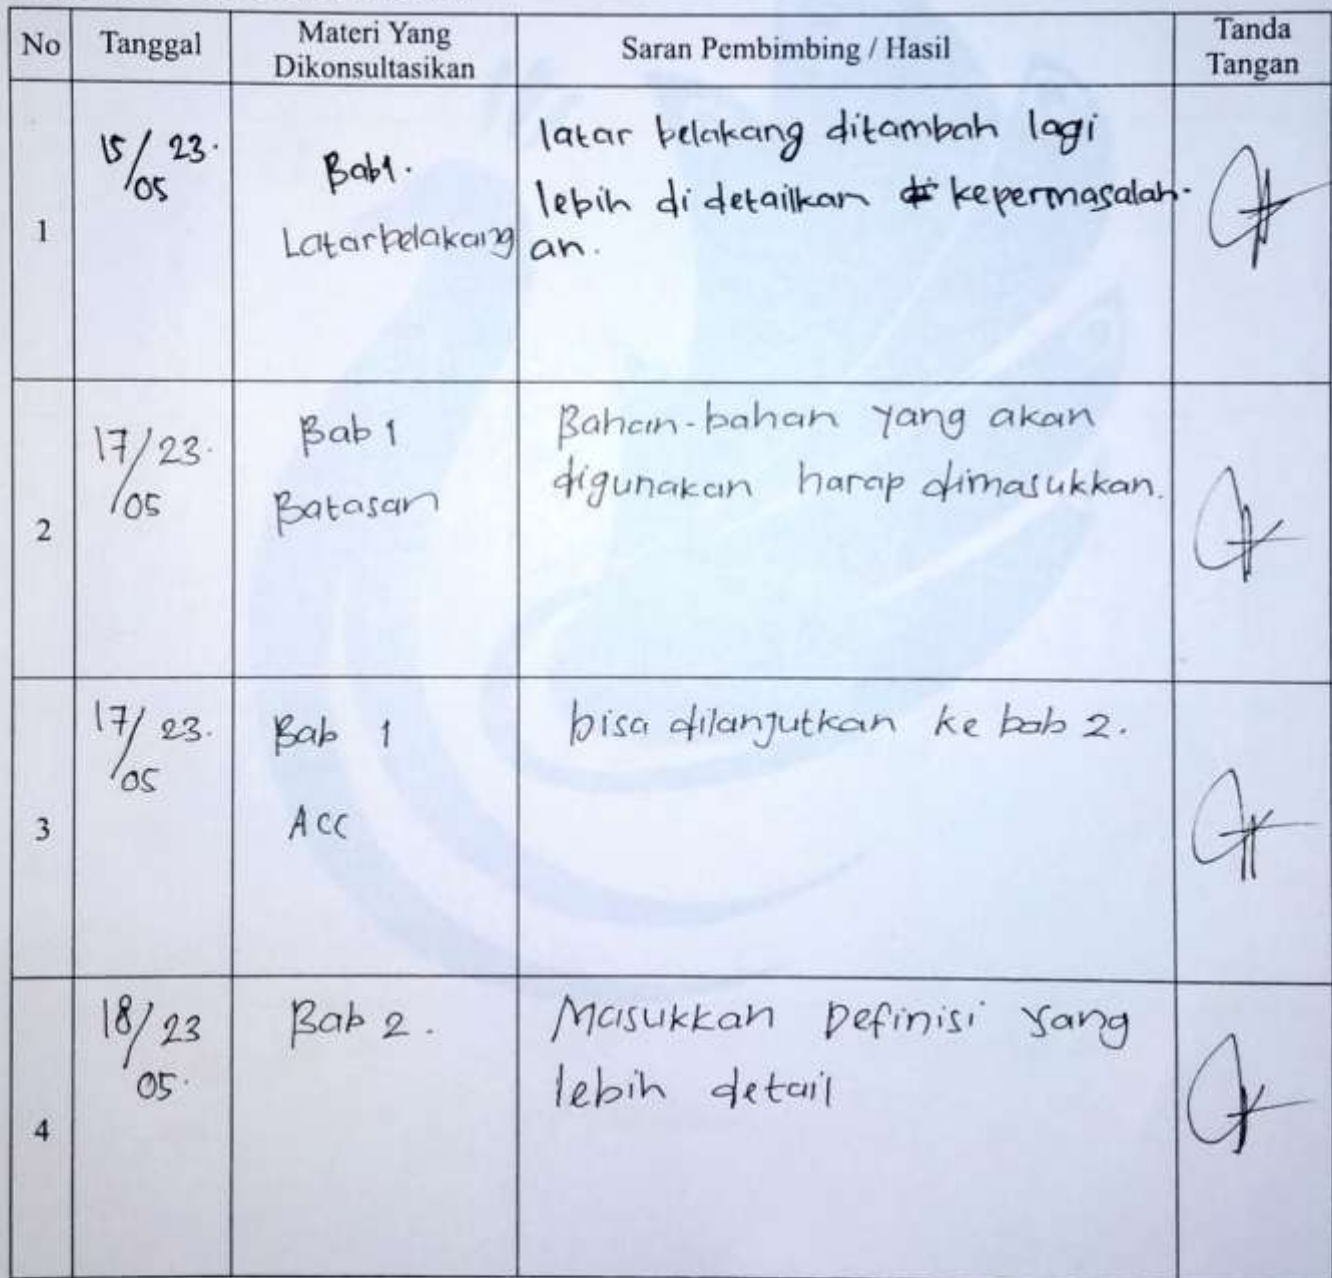 No Tanggal Materi Yang Dikonsultasikan Saran Pembimbing / Hasil Tanda Tangan
1
15/05 23.
Bab 1.
Latar belakang
latar belakang ditambah lagi
lebih di detailkan kepermasalah-
an.
2
17/05 23.
Bab 1
Batasan
Bahan-bahan yang akan
digunakan harap dimasukkan.
3
17/05 23.
Bab 1
ACC
bisa dilanjutkan ke bab 2.
4
18/05 23
Bab 2.
Masukkan Definisi yang
lebih detail